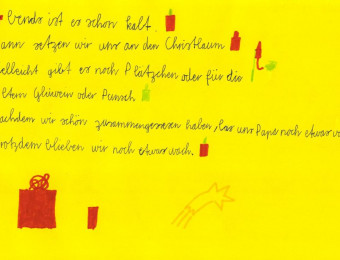 bends ist es schon kalt.
ann setzen wir uns an den Christbaum
elleicht gibt es noch Plätzchen oder für die
ltern Glüwein oder Punsch
achdem wir schön zusammengesessen haben, las uns Papa noch etwas vo
rotzdem blieben wir noch etwas wach.